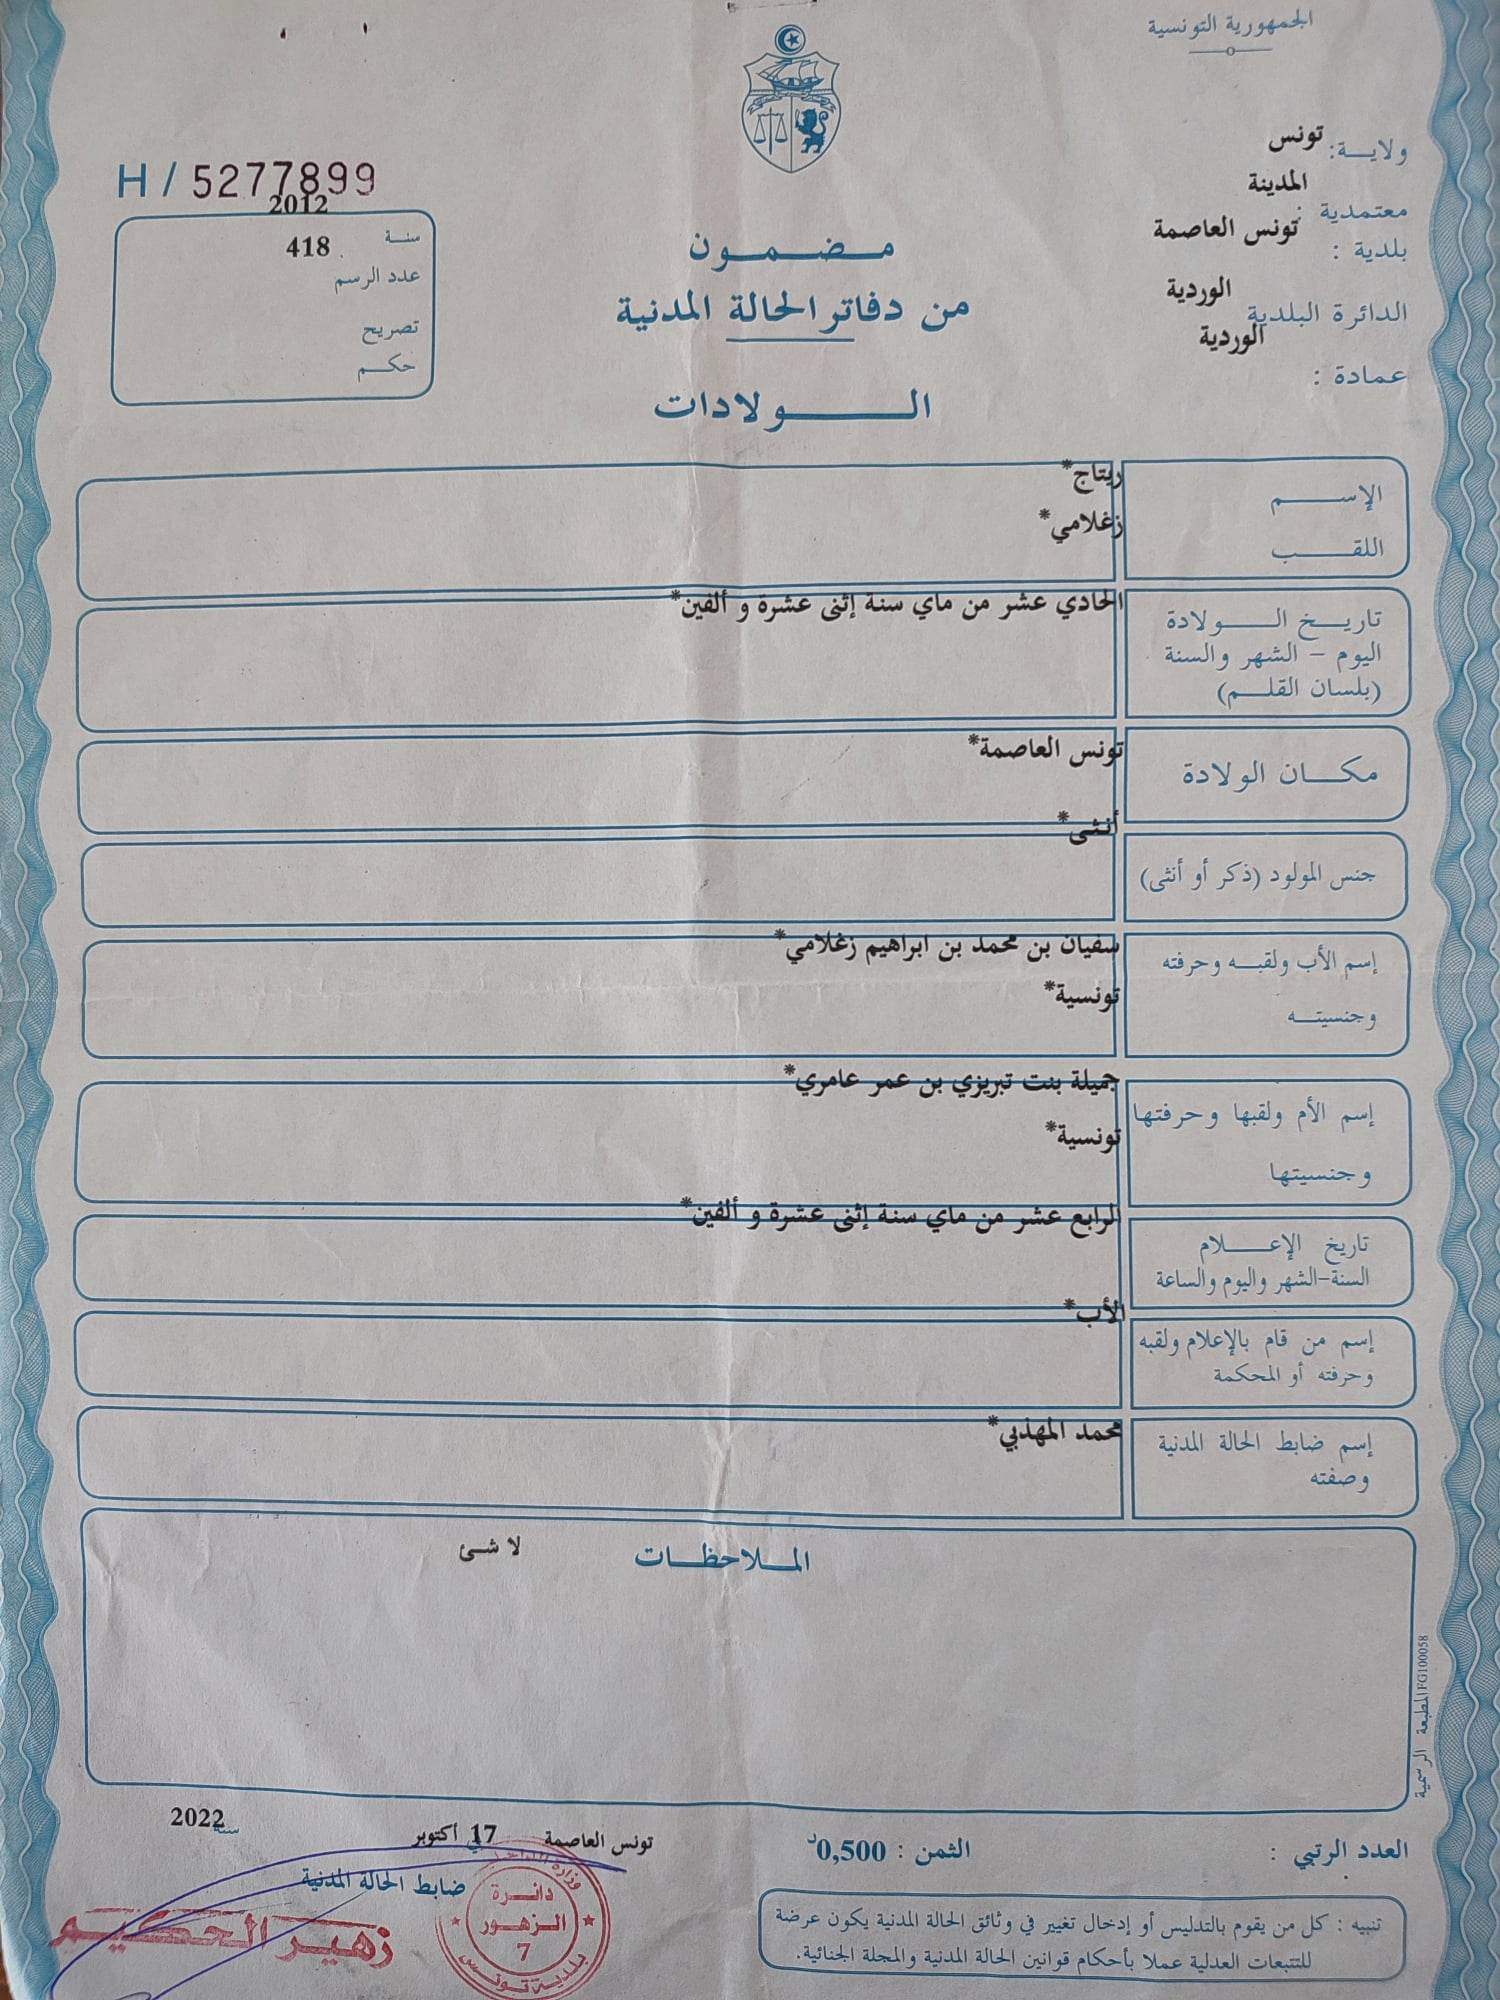 الجمهورية التونسية
ولايــة: تونس
معتمدية : المدينة
بلدية : تونس العاصمة
الدائرة البلدية الوردية
عمادة : الوردية
H / 5277899
سنة 2012
عدد الرسم 418
تصريح
حكم
مضمون
من دفاتر الحالة المدنية
الولادات
الإسم ريتاج*
اللقب زغلامي*
تاريخ الولادة الحادي عشر من ماي سنة إثنى عشرة و ألفين*
اليوم - الشهر والسنة
(بلسان القلم)
مكان الولادة تونس العاصمة*
جنس المولود (ذكر أو أنثى) أنثى*
إسم الأب ولقبه وحرفته سفيان بن محمد بن ابراهيم زغلامي*
وجنسيته تونسية*
إسم الأم ولقبها وحرفتها جميلة بنت تبريزي بن عمر عامري*
وجنسيتها تونسية*
تاريخ الإعلام الرابع عشر من ماي سنة إثنى عشرة و ألفين*
السنة-الشهر واليوم والساعة
إسم من قام بالإعلام ولقبه الأب*
وحرفته أو المحكمة
إسم ضابط الحالة المدنية محمد المهذبي*
وصفته
الملاحظات لا شئ
المطبعة الرسمية FG100058
العدد الرتبي :
الثمن : 0,500د
تونس العاصمة في 17 أكتوبر سنة 2022
ضابط الحالة المدنية
زهير الحكيم
دائرة
الزهور
7
بلدية تونس
تنبيه : كل من يقوم بالتدليس أو إدخال تغيير في وثائق الحالة المدنية يكون عرضة
للتتبعات العدلية عملا بأحكام قوانين الحالة المدنية والمجلة الجنائية.